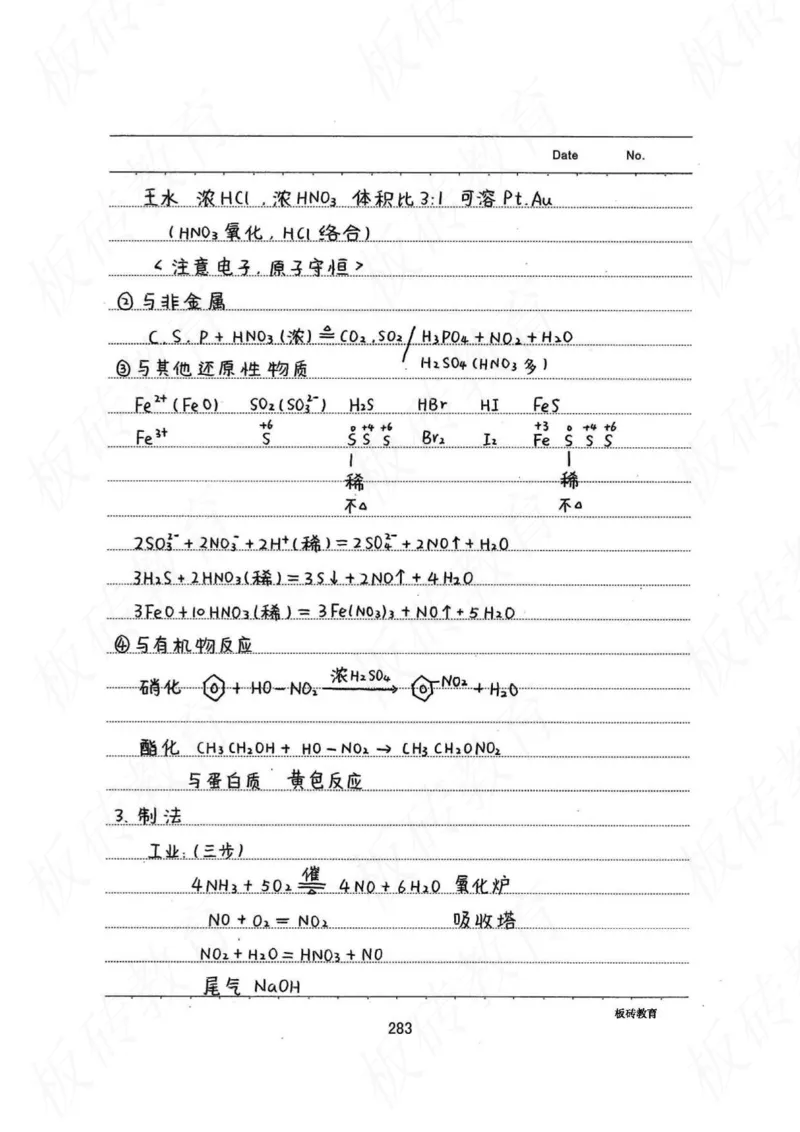 Date No.
王水 浓HCl，浓HNO₃ 体积比3:1 可溶Pt.Au
(HNO₃氧化，HCl络合)
<注意电子，原子守恒>
②与非金属
C、S、P + HNO₃(浓) ≜ CO₂,SO₂/H₃PO₄ + NO₂ + H₂O
H₂SO₄(HNO₃多)
③与其他还原性物质
Fe²⁺(FeO) SO₂(SO₃²⁻) H₂S HBr HI FeS
+6 0 +4 +6 +3 0 +4 +6
Fe³⁺ S S S S Br₂ I₂ Fe S S S
稀 稀
不△ 不△
2SO₃²⁻ + 2NO₃⁻ + 2H⁺(稀) = 2SO₄²⁻ + 2NO↑ + H₂O
3H₂S + 2HNO₃(稀) = 3S↓ + 2NO↑ + 4H₂O
3FeO + 10HNO₃(稀) = 3Fe(NO₃)₃ + NO↑ + 5H₂O
④与有机物反应
硝化 + HO－NO₂ 浓H₂SO₄ → －NO₂ + H₂O
酯化 CH₃CH₂OH + HO－NO₂ → CH₃CH₂ONO₂
与蛋白质 黄色反应
3. 制法
工业：(三步)
4NH₃ + 5O₂ 催 ≜ 4NO + 6H₂O 氧化炉
NO + O₂ = NO₂ 吸收塔
NO₂ + H₂O = HNO₃ + NO
尾气 NaOH
板砖教育
283